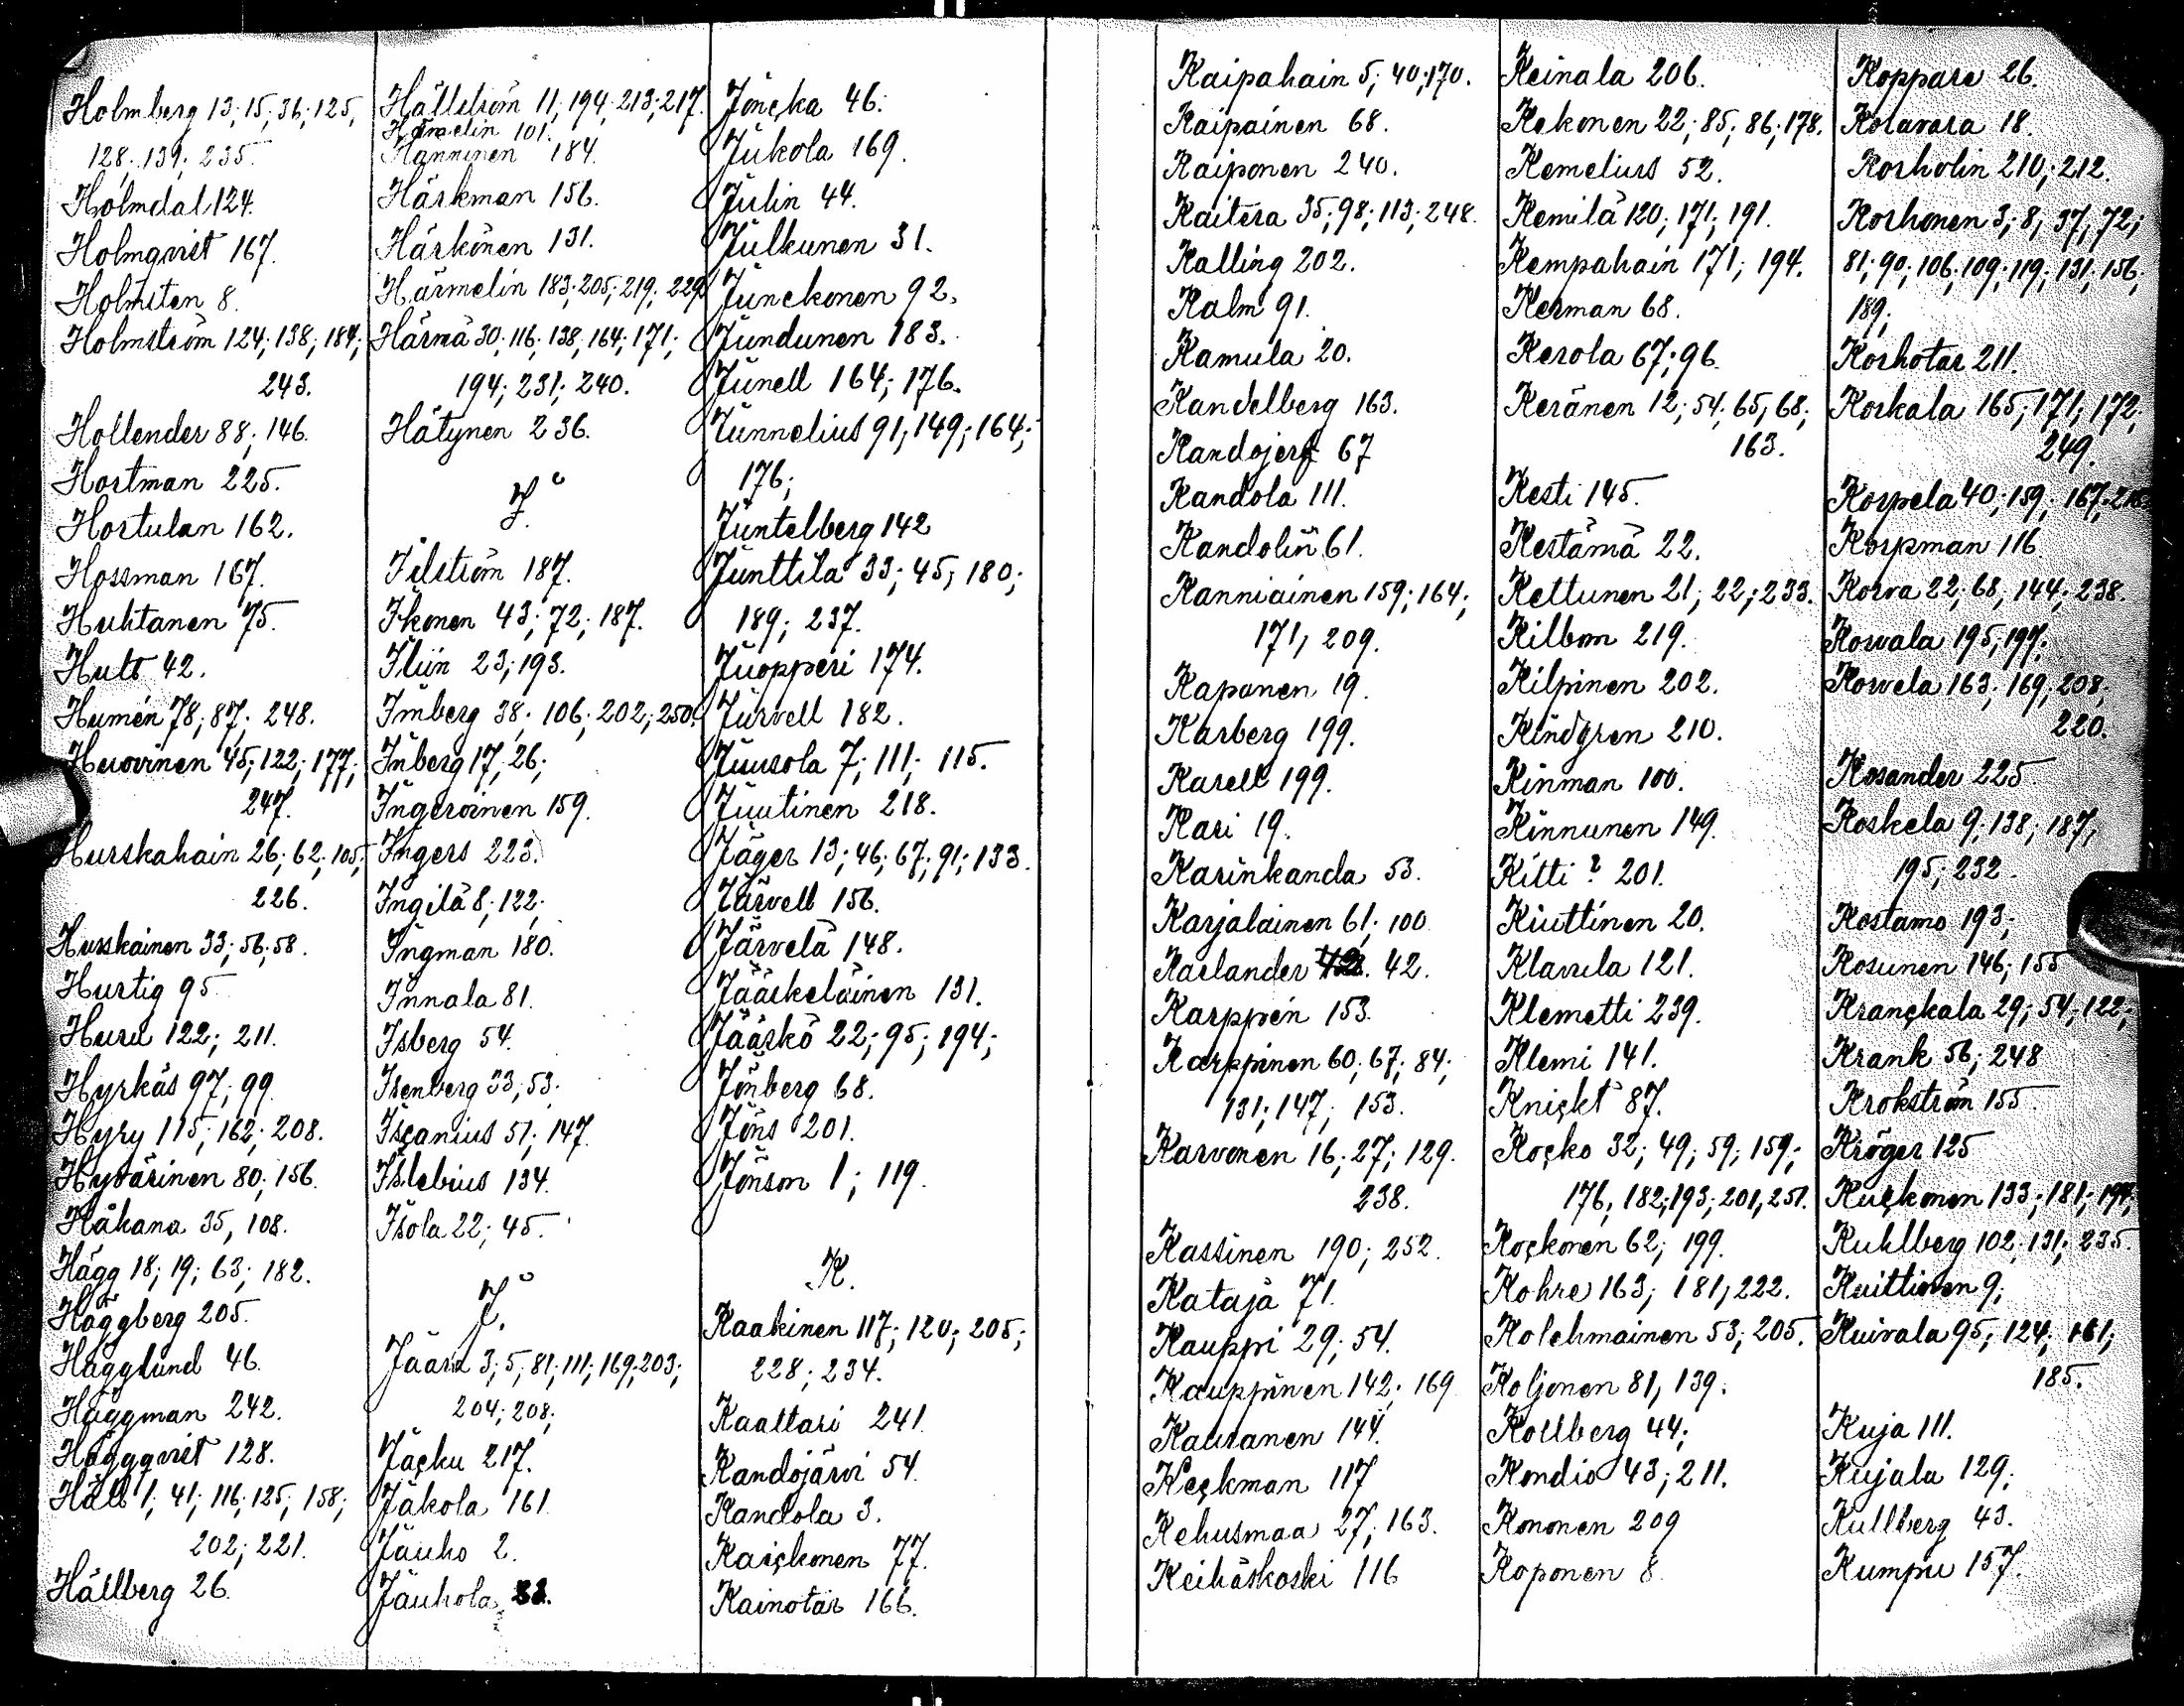 Holmberg 13; 15; 36; 125,
128; 139; 235.
Holmdal 124.
Holmqvist 167.
Holmsten 8.
Holmström 124; 138; 184;
243.
Hollender 88; 146.
Hortman 225.
Hortulan 162.
Hossman 167.
Huhtanen 75.
Hult 42.
Humén 78; 87; 248.
Hurovinen 45; 122; 177;
247.
Hurskahain 26; 62; 105;
226.
Hurskainen 33; 56; 58.
Hurtig 95
Huru 122; 211.
Hyrkäs 97; 99.
Hyry 115; 162; 208.
Hyvärinen 80; 156.
Håkana 35, 108.
Hägg 18; 19; 63; 182.
Häggberg 205.
Hägglund 46.
Häggman 242.
Häggqvist 128.
Häll 1; 41; 116; 125; 158;
202; 221.
Hällberg 26.
Hällström 11; 194; 213; 217.
Hämelin 101.
Hänninen 184.
Härkman 156.
Härkönen 131.
Härmelin 183; 205; 219; 229
Härmä 30; 116; 138, 164; 171;
194; 231; 240.
Hätynen 236.
I.
Idström 187.
Ikonen 43; 72; 187.
Iliin 23; 193.
Imberg 38; 106; 202; 250.
Inberg 17; 26;
Ingeroinen 159.
Ingers 223.
Ingilä 8; 122;
Ingman 180.
Innala 81.
Isberg 54.
Isenberg 33; 53.
Iscanius 51; 147.
Islebius 134.
Isola 22; 45.
J.
Jaara 3; 5; 81; 111; 169; 203;
204; 208;
Jacku 217.
Jakola 161.
Jauho 2.
Jauhola 33.
Joncka 46.
Jukola 169.
Julin 44.
Julkunen 31.
Junckonen 92.
Jundunen 183.
Junell 164; 176.
Junnelius 91; 149; 164;
176;
Juntelberg 142
Junttila 33; 45; 180;
189; 237.
Juopperi 174.
Jurvell 182.
Juusola 7; 111; 115.
Juutinen 218.
Jäger 13; 46; 67; 91; 133.
Järvell 156.
Järvelä 148.
Jääskeläinen 131.
Jääskö 22; 95; 194;
Jönberg 68.
Jöns 201.
Jönson 1; 119.
K.
Kaakinen 117; 120; 205;
228; 234.
Kaaltari 241.
Kandojärvi 54.
Kandola 3.
Kaickonen 77.
Kainotar 166.
Kaipahain 5; 40; 170.
Kaipainen 68.
Kaiponen 240.
Kaitera 35; 98; 113; 248.
Kalling 202.
Kalm 91.
Kamula 20.
Kandelberg 163.
Kandojerf 67
Kandola 111.
Kandolin 61.
Kanniainen 159; 164;
171, 209.
Kaponen 19.
Karberg 199.
Karell 199.
Kari 19.
Karinkanda 53.
Karjalainen 61; 100
Karlander 42.
Karppén 153.
Karppinen 60; 67; 84;
131; 147; 153.
Karvonen 16; 27; 129.
238.
Kassinen 190; 252.
Kataja 71.
Kauppi 29; 54.
Kauppinen 142; 169
Kauranen 144.
Keckman 117
Kehusmaa 27; 163.
Keihäskoski 116
Keinala 206.
Kekonen 22; 85; 86; 178.
Kemelius 52.
Kemilä 120; 171; 191.
Kempahain 171; 194.
Kerman 68.
Kerola 67; 96.
Keränen 12; 54; 65; 68;
163.
Kesti 145.
Kestämä 22.
Kettunen 21; 22; 233.
Kilbom 219.
Kilpinen 202.
Kindgren 210.
Kinman 100.
Kinnunen 149.
Kitti? 201.
Kiuttinen 20.
Klavula 121.
Klemetti 239.
Klemi 141.
Knickt 87.
Kocko 32; 49; 59; 159;
176; 182; 193; 201, 251.
Kockonen 62; 199.
Kohre 163; 181, 222.
Kolehmainen 53; 205.
Koljonen 81, 139.
Kollberg 44;
Kondio 43; 211.
Kononen 209
Koponen 8.
Koppare 26.
Koravara 18.
Korholin 210; 212.
Korhonen 3; 8; 37; 72;
81; 90; 106; 109; 119; 131; 156;
189;
Korhotar 211.
Korkala 165; 171; 172;
249.
Korpela 40; 159; 167;
Korpman 116
Korva 22; 68; 144; 238.
Korvala 195; 197;
Korvela 163; 169; 208;
220.
Kosander 225
Koskela 9; 138; 187;
195; 232.
Kostamo 193;
Kosunen 146; 155
Kranckala 29; 54; 122;
Krank 56; 248
Krokström 155
Kröger 125
Kuckonen 133; 181; 194;
Kuhlberg 102; 131; 235.
Kuittinen 9;
Kuivala 95; 124; 161;
185.
Kuja 111.
Kujala 129;
Kullberg 43.
Kumpu 157.